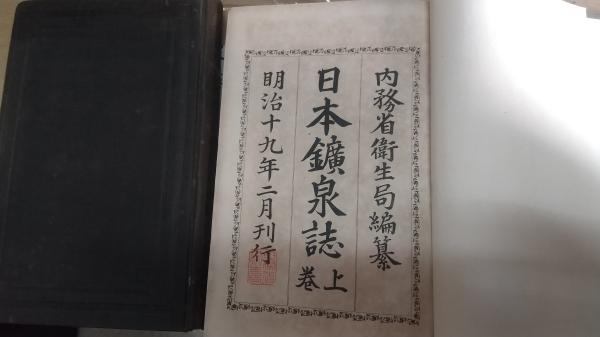 内務省衛生局編纂
日本鑛泉誌上巻
明治十九年二月刊行